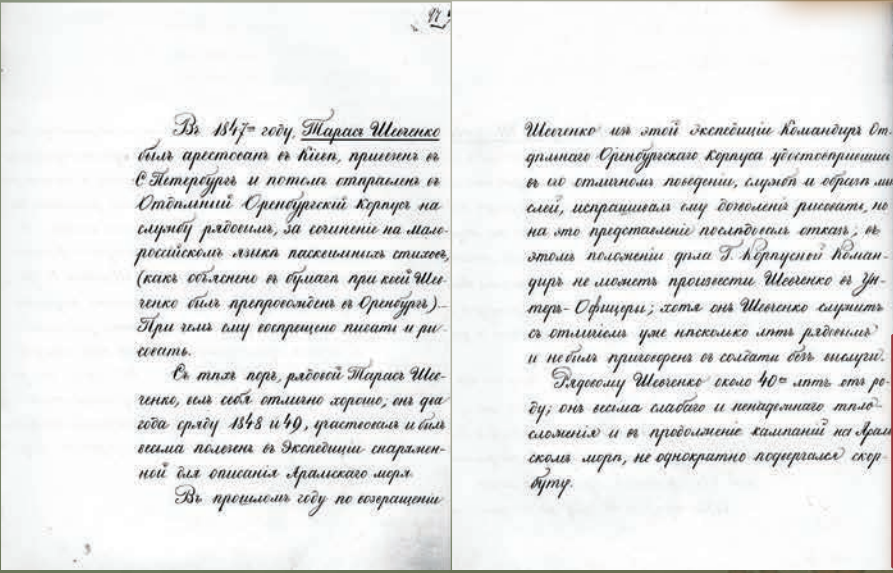 17
Въ 1847ᵐ году, Тарасъ Шевченко
былъ арестованъ въ Кіевѣ, привезенъ въ
С Петербургъ и потомъ отправленъ въ
Отдѣльный Оренбургскій Корпусъ на
службу рядовымъ, за сочиненіе на Мало-
россійскомъ языкѣ пасквильныхъ стиховъ,
(какъ объяснено въ бумагѣ при коей Шев-
ченко былъ препровожденъ въ Оренбургъ).–
При чемъ ему воспрещено писать и ри-
совать.
Съ тѣхъ поръ, рядовой Тарасъ Шев-
ченко, велъ себя отлично хорошо, онъ два
года сряду 1848 и 49, участвовалъ и былъ
весьма полезенъ въ Экспедиціи снаряжен-
ной для описанія Аральскаго моря.
Въ прошломъ году по возвращеніи
Шевченко изъ этой Экспедиціи Командиръ От-
дѣльнаго Оренбургскаго Корпуса удостовѣрившись
въ его отличномъ поведеніи, службѣ и образѣ мы
слей, испрашивалъ ему дозволенія рисовать, но
на это представленіе послѣдовалъ отказъ; въ
этомъ положеніи дѣла Г. Корпусной Коман-
диръ не можетъ произвести Шевченко въ Ун-
теръ-Офицеры; хотя онъ Шевченко служитъ
съ отличіемъ уже нѣсколько лѣтъ рядовымъ
и не былъ приговоренъ въ солдаты безъ выслуги.
Рядовому Шевченко около 40ᵃ лѣтъ отъ ро-
ду; онъ весьма слабаго и ненадежнаго тѣло-
сложенія и въ продолженіе кампаній на Араль
скомъ морѣ, не однократно подвергался скор-
буту.